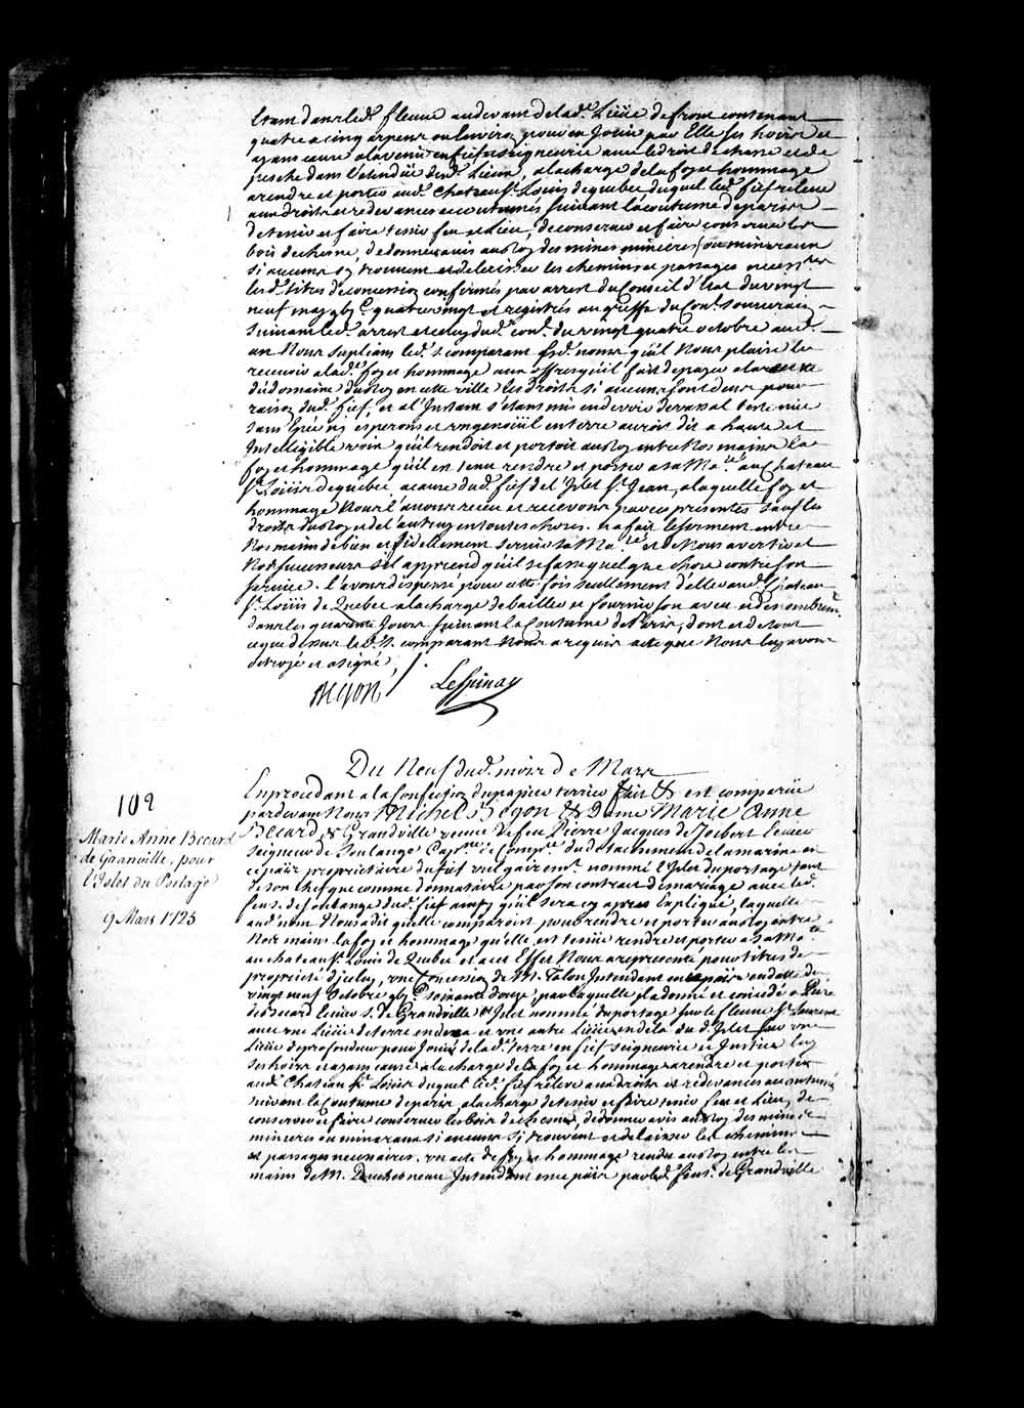 Etant dans led. fleuve au devant de lad. Lieüe de front contenant
quatre a cinq arpens ou Environ pour en Jouir par Elle ses hoirs et
ayans cause a lavenir en fief et seigneurie avec le droit de chasse et de
pesche dans l'etendüe desd. Lieux, a la charge de la foy et hommage
a rendre et porter aud. Chateau St. Loüis de quebec duquel led. fief releve
aux droits et redevances accoutumés suivant la coutume de paris
de tenir et faire tenir feu et Lieu, de conserver et faire conserver les
bois de chesne, de donner avis au Roy des mines minieres ou mineraux
si aucuns s'y trouvent et de laisser les chemins et passages necessres
lesd. titres de concession confirmés par arrest du Conseil d'Etat du vingt
neuf may gbi c. quatre vingt et registrés au greffe du Conl. souverain
suivant led. arrest et celuy dud. conl. du vingt quatre octobre aud.
an Nous supliant led. s. comparant esd. noms qu'il Nous plaise le
recevoir a lad. foy et hommage aux offres qu'il fait de payer a la recette
du domaine du Roy en cette ville les droits si aucuns sont deus pour
raison dud. fief, et a l'Instant s'etant mis en devoir de vassal teste nüe
sans Epée ny esperons et un genoüil en terre auroit dit a haute et
Intelligible voix qu'il rendoit et portoit au Roy entre Nos mains la
foy et hommage qu'il est tenu rendre et porter a sa Ma.té au Chateau
St. Loüis de quebec a cause dud. fief de l'Islet St. Jean, a laquelle foy et
hommage Nous l'avons receu et recevons par ces presentes sauf les
droits du Roy et de l'autruy en toutes choses. Et a fait le serment entre
Nos mains de bien et fidellement servir sa Ma.té et de Nous avertir et
Nos successeurs s'il apprend qu'il se fasse quelque chose contre son
service. l'avons dispensé pour cette fois seullement d'aller aud. Chateau
St. Loüis de Quebec a la charge de bailler et fournir son aveu et denombremt.
dans les quarante Jours suivant la Coutume de Paris, dont et de tout
ce que dessus led. s. comparant Nous a requis acte que Nous luy avons
octroyé et a signé,
Begon Lespinay
Du Neuf dud. mois de Mars
En procedant a la Confection du papier terrier fait &c est comparüe
pardevant Nous Michel Begon &c Dame Marie Anne
Becard de Grandville veuve de feu Pierre Jacques de Joibert Ecuier
seigneur de Soulange Capne. de Compie. du detachement de la marine en
ce païs proprietaire du fief vulgairemt. nommé l'Islet du portage tant
de son chef que comme donnataire par son contrat de mariage avec led.
feu s. de Soulange dud. fief ainsy qu'il sera cy apres Expliqué, laquelle
aud. nom Nous a dit quelle comparoist pour rendre et porter au Roy entre
Nos mains la foy et hommage qu'elle est tenüe rendre et porter a sa Ma.té
au chateau St. Louis de Quebec et a cet Effet Nous a representé pour titres de
proprieté d'jceluy, une Concession de M. Talon Intendant en ce païs en datte du
vingt neuf Octobre gbi c. soixante douze, par laquelle jl a donné et concedé a Pierre
de Becard Ecuier s. de Grandville l'Islet nommé du portage sur le fleuve St. Laurent
avec une Lieüe de terre en deça et une autre Lieüe au dela du d. Jslet sur une
Lieüe de profondeur pour Jouir de lad. terre en fief seigneurie et Justice luy
ses hoirs et ayans cause a la charge de la foy et hommage a rendre et porter
aud. Chateau St. Loüis duquel led. fief releve aux droits et redevances accoutumés
suivant la Coutume de paris, a la charge de tenir et faire tenir feu et Lieu, de
conserver et faire conserver les bois de chesne, de donner avis au Roy des mines
minieres ou mineraux si aucuns s'y trouvent et de laisser les chemins
et passages necessaires. un acte de foy et hommage rendu au Roy entre les
mains de M. Duchesneau Intendant en ce païs par led. feu s. de Grandville
102
Marie Anne Becard
de Granville, pour
l'Islet du Portage
9 Mars 1723